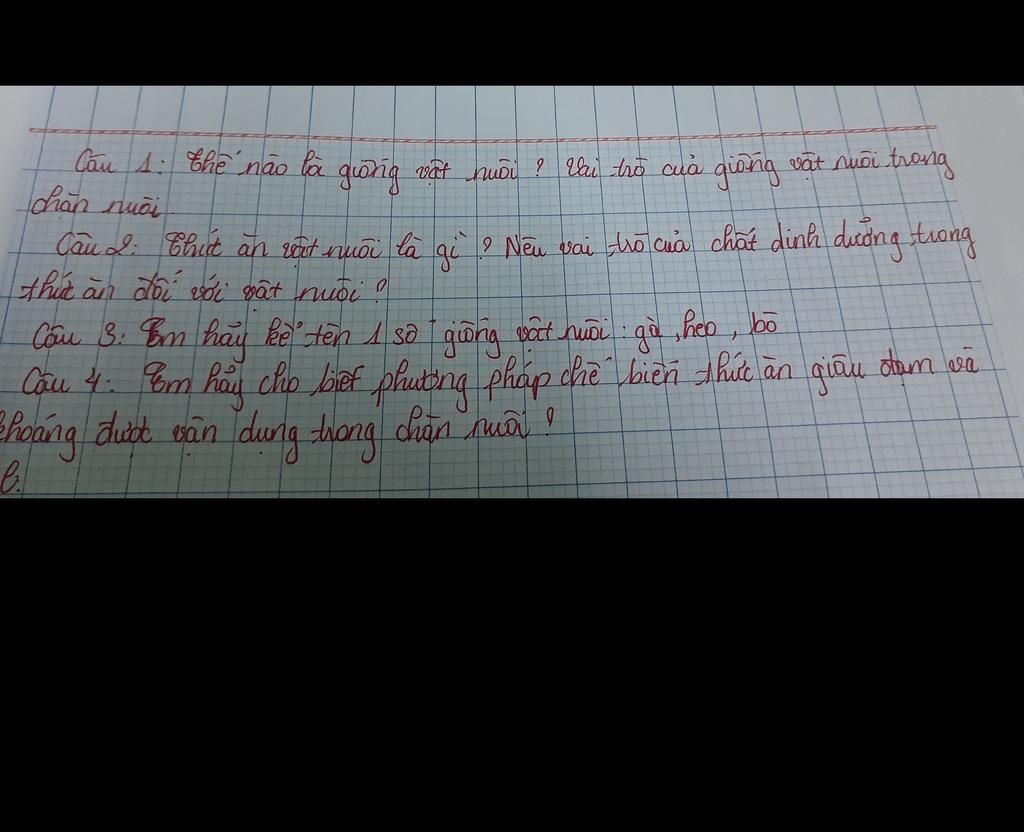 Câu 1: Thế nào là giống vật nuôi? Vai trò của giống vật nuôi trong
chăn nuôi
Câu 2: Thức ăn vật nuôi là gì? Nêu vai trò của chất dinh dưỡng trong
thức ăn đối với vật nuôi?
Câu 3: Em hãy kể tên 1 số giống vật nuôi: gà, heo, bò
Câu 4: Em hãy cho biết phương pháp chế biến thức ăn giàu đạm và
khoáng được vận dụng trong chăn nuôi?